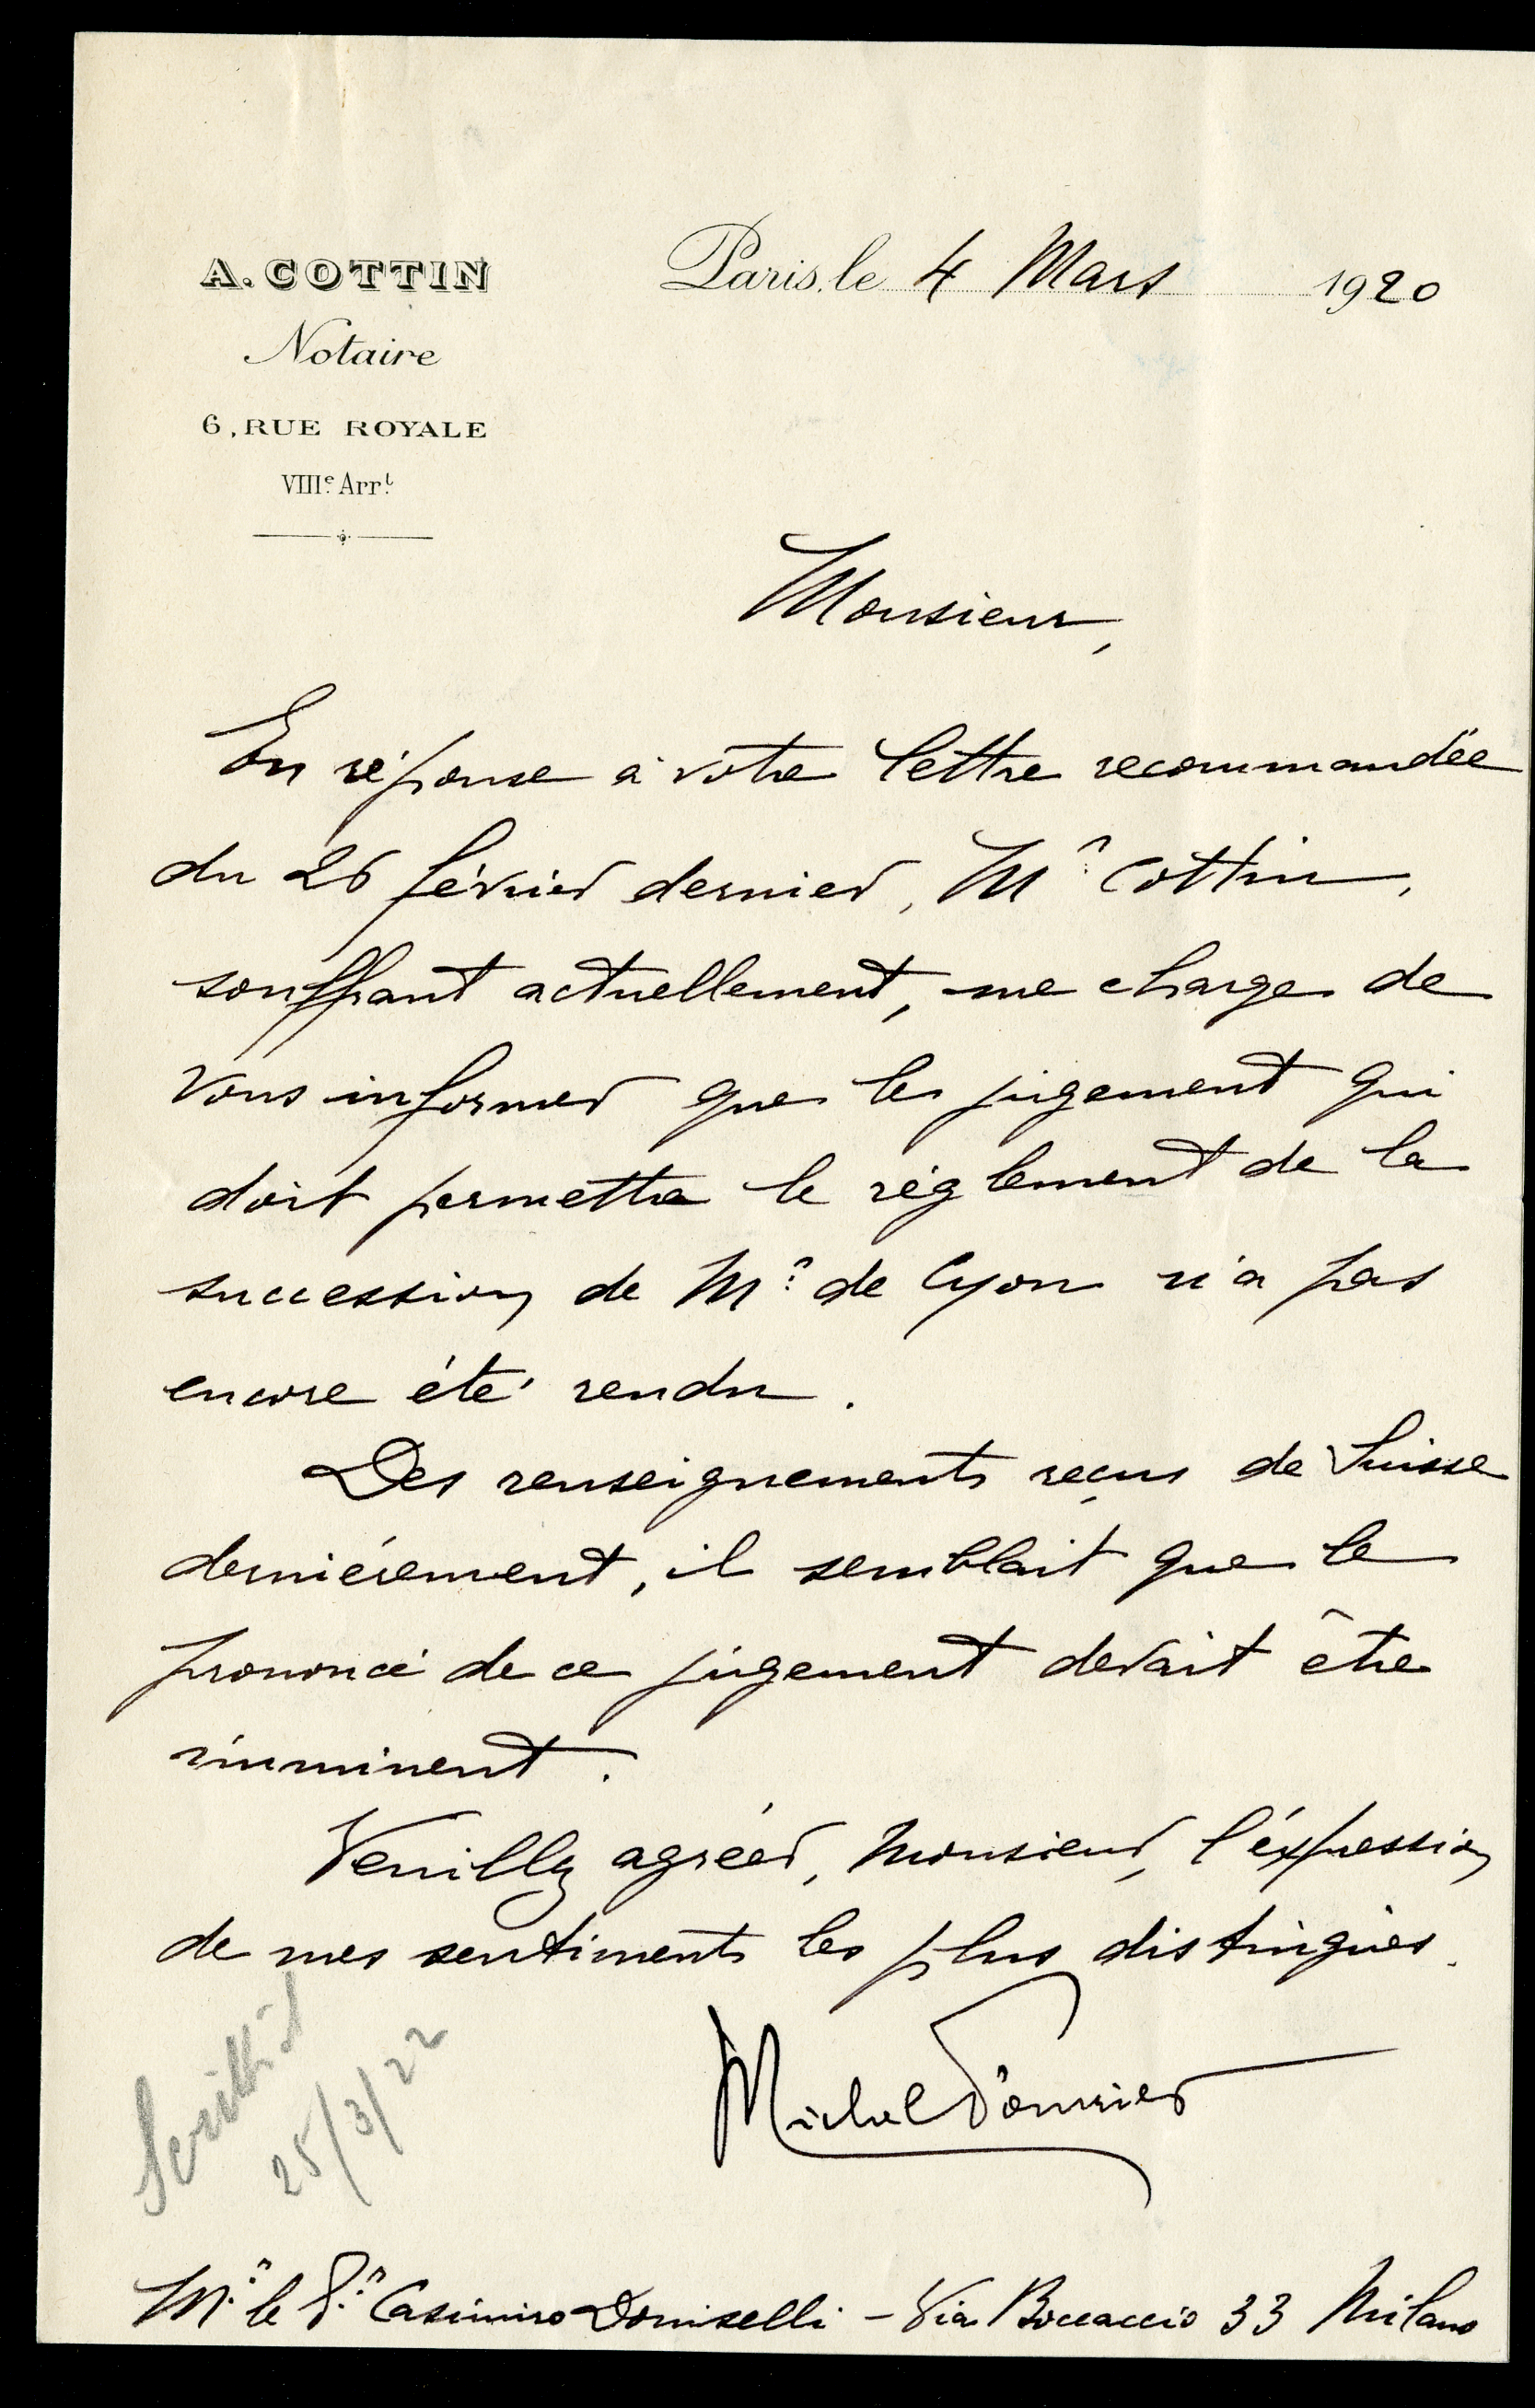 A. COTTIN
Notaire
6, RUE ROYALE
VIIIe. Arrt.
Paris, le 4 Mars 1920
Monsieur,
En réponse à votre lettre recommandée
du 26 février dernier, Mr Cottin,
souffrant actuellement, me charge de
vous informer que le jugement qui
doit permettre le réglement de la
succession de Mr de Cyon n'a pas
encore été rendu.
Des renseignements reçus de Suisse
dernièrement, il semblait que le
prononcé de ce jugement devait être
imminent.
Veuillez agréer, Monsieur, l'expression
de mes sentiments les plus distingués.
Michel Fourrier
25/3/22
Mr. le Dr. Casimiro Doniselli - Via Boccaccio 33 Milano